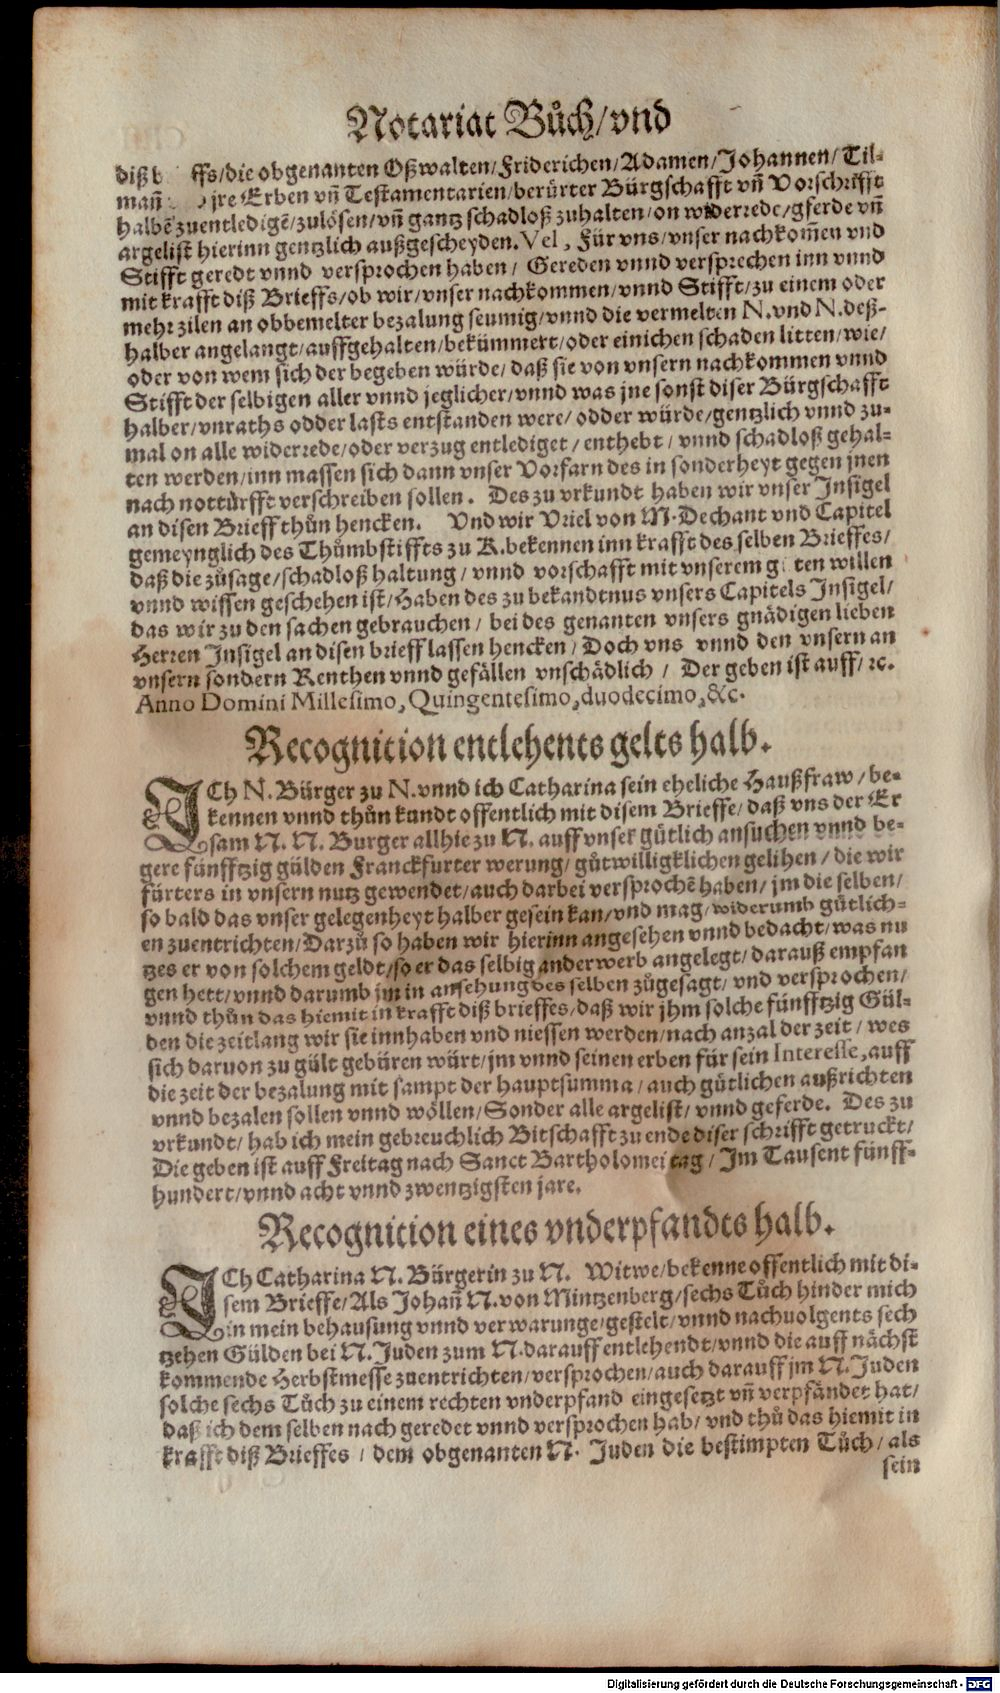 Notariat Bůch/vnd
diß b ffs/die obgenanten Oßwalten/Friderichen/Adamen/Johannen/Til-
mañ jre Erben vñ Testamentarien/berürter Bürgschafft vñ Vorschrifft
halbẽ zuentledigẽ/zulösen/vñ gantz schadloß zuhalten/on widerrede/gferde vñ
argelist hierinn gentzlich außgescheyden. Vel, Für vns/vnser nachkom̃en vnd
Stifft geredt vnnd versprochen haben/ Gereden vnnd versprechen inn vnnd
mit krafft diß Brieffs/ob wir/vnser nachkommen/vnnd Stifft/zu einem oder
mehr zilen an obbemelter bezalung seumig/vnnd die vermelten N. vnd N. deß-
halber angelangt/auffgehalten/bekümmert/oder einichen schaden litten/wie/
oder von wem sich der begeben würde/daß sie von vnsern nachkommen vnnd
Stifft der selbigen aller vnnd jeglicher/vnnd was jne sonst diser Bürgschafft
halber/vnraths odder lasts entstanden were/odder würde/gentzlich vnnd zu-
mal on alle widerrede/oder verzug entlediget/enthebt/vnnd schadloß gehal-
ten werden/inn massen sich dann vnser Vorfarn des in sonderheyt gegen jnen
nach notturfft verschreiben sollen. Des zu vrkundt haben wir vnser Insigel
an disen Brieff thůn hencken. Vnd wir Vriel von M. Dechant vnd Capitel
gemeynglich des Thůmbstiffts zu K. bekennen inn krafft des selben Brieffes/
daß die zůsage/schadloß haltung/vnnd vorschafft mit vnserem g ten willen
vnnd wissen geschehen ist/Haben des zu bekandtnus vnsers Capitels Insigel/
das wir zu den sachen gebrauchen/bei des genanten vnsers gnädigen lieben
Herren Insigel an disen brieff lassen hencken/Doch vns vnnd den vnsern an
vnsern sondern Renthen vnnd gefällen vnschädlich/ Der geben ist auff/ꝛc.
Anno Domini Millesimo, Quingentesimo, duodecimo, &c.
Recognition entlehents gelts halb.
ICh N. Bürger zu N. vnnd ich Catharina sein eheliche Haußfraw/be-
kennen vnnd thůn kundt offentlich mit disem Brieffe/daß vns der Er
sam N. N. Burger allhie zu N. auff vnser gütlich ansuchen vnnd be-
gere fünfftzig gülden Franckfurter werung/gůtwilligklichen gelihen/die wir
fürters in vnsern nutz gewendet/auch darbei versprochẽ haben/jm die selben/
so bald das vnser gelegenheyt halber gesein kan/vnd mag/widerumb gütlich-
en zuentrichten/Darzů so haben wir hierinn angesehen vnnd bedacht/was nu
tzes er von solchem geldt/so er das selbig anderwerb angelegt/darauß empfan
gen hett/vnnd darumb jm in ansehung des selben zůgesagt/vnd versprochen/
vnnd thůn das hiemit in krafft diß brieffes/daß wir jhm solche fünfftzig Gül-
den die zeitlang wir sie innhaben vnd niessen werden/nach anzal der zeit/wes
sich daruon zu gült gebüren würt/jm vnnd seinen erben für sein Interesse, auff
die zeit der bezalung mit sampt der hauptsumma/auch gütlichen außrichten
vnnd bezalen sollen vnnd wöllen/Sonder alle argelist/vnnd geferde. Des zu
vrkundt/hab ich mein gebreuchlich Bitschafft zu ende diser schrifft getruckt/
Die geben ist auff Freitag nach Sanct Bartholomei tag/Im Tausent fünff-
hundert/vnnd acht vnnd zwentzigsten jare.
Recognition eines vnderpfandts halb.
ICh Catharina N. Bürgerin zu N. Witwe/bekenne offentlich mit di-
sem Brieffe/Als Johañ N. von Mintzenberg/sechs Tůch hinder mich
in mein behausung vnnd verwarunge/gestelt/vnnd nachuolgents sech
tzehen Gülden bei N. Juden zum N. darauff entlehendt/vnnd die auff nächst
kommende Herbstmesse zuentrichten/versprochen/auch darauff jm N. Juden
solche sechs Tůch zu einem rechten vnderpfand eingesetzt vñ verpfändet hat/
daß ich dem selben nach geredet vnnd versprochen hab/vnd thů das hiemit in
krafft diß Brieffes/dem obgenanten N. Juden die bestimpten Tůch/als
sein
Digitalisierung gefördert durch die Deutsche Forschungsgemeinschaft - DFG